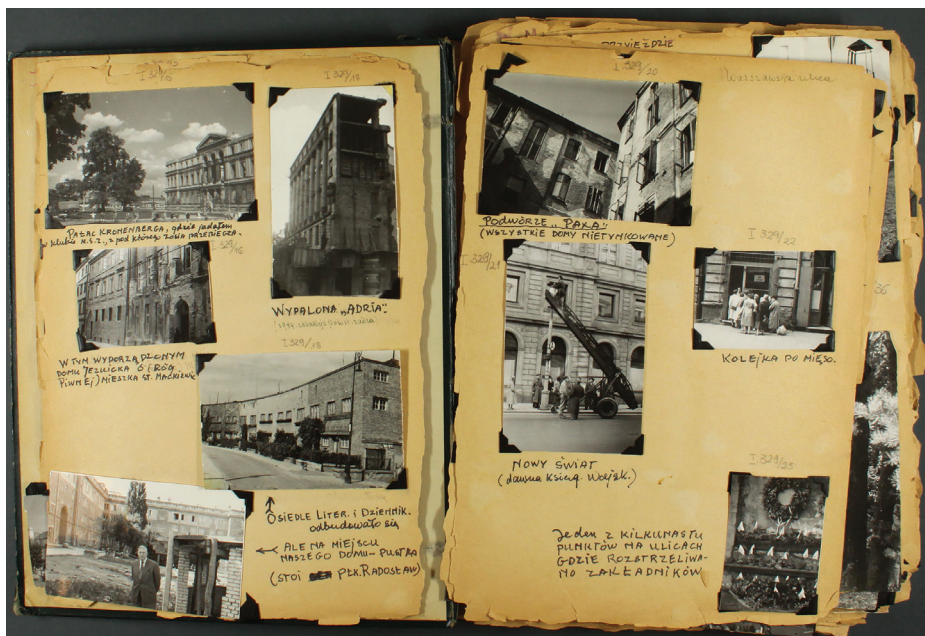 I 329/17
PAŁAC KRONENBERGA, gdzie jadałem
w klubie K.S.Z., z pod którego ZOSIA
I 329/16
WYPALONA „ADRIA”
I 329/18
W TYM WYPORZĄDZONYM
DOMU JEZUICKA 6 (RÓG
PIWNEJ) MIESZKA ST. MACKIEWICZ
OSIEDLE LITER. i DZIENNIK.
odbudowało się
ALE NA MIEJSCU
NASZEGO DOMU – PUSTKA
(STOI PŁK. RADOSŁAW)
PRZYJEŹDZIE
I 329/20
Warszawska ulica
PODWÓRZE „PAXA”
(WSZYSTKIE DOMY NIETYNKOWANE)
I 329/21
I 329/22
KOLEJKA PO MIĘSO.
36
NOWY ŚWIAT
(dawna Księg. Wojsk.)
I 329/25
Jeden Z KILKUNASTU
PUNKTÓW NA ULICACH
GDZIE ROZSTRZELIWA-
NO ZAKŁADNIKÓW